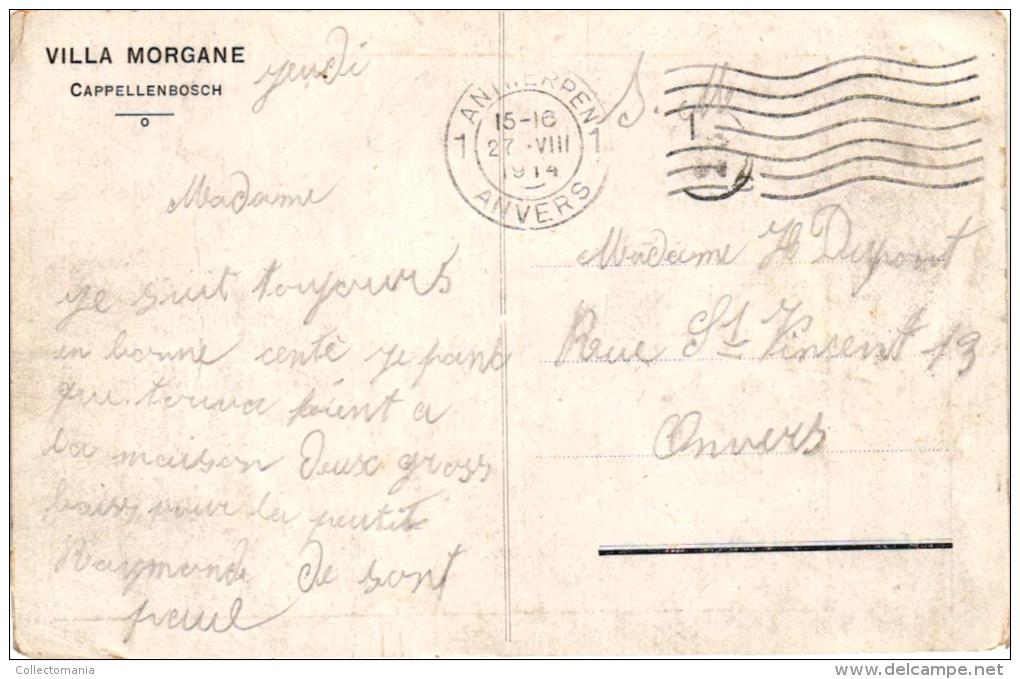 VILLA MORGANE
CAPPELLENBOSCH
jeudi
Madame
je suit toujours
en bonne centè je panse
qui touva bient a
la maison deux gross
bais pour la peutit
Raymonde de sont
paul
1 ANTWERPEN 1
15-16
27 VIII
1914
ANVERS
S. M
1
Madame H Dupont
Rue St Vincent 13
Anvers
Collectomania
http://www.delcampe.net